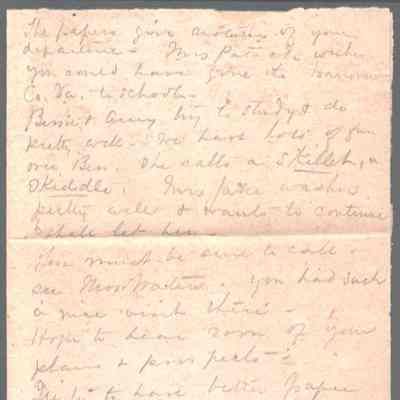 The papers give notices of your
departure - Mrs Pat wishes
you could have gone to
Co. Va. to school -
Bessie & try to study & do
pretty well - We have lots of fun
over Ben. She calls a Skillet, a
Skiddle. Mrs washes
pretty well & wants to continue
shall let her -
You must be sure to call &
see Waters. You had such
a nice visit there -
Hope to hear soon of your
plans & prospects -
to have better paper